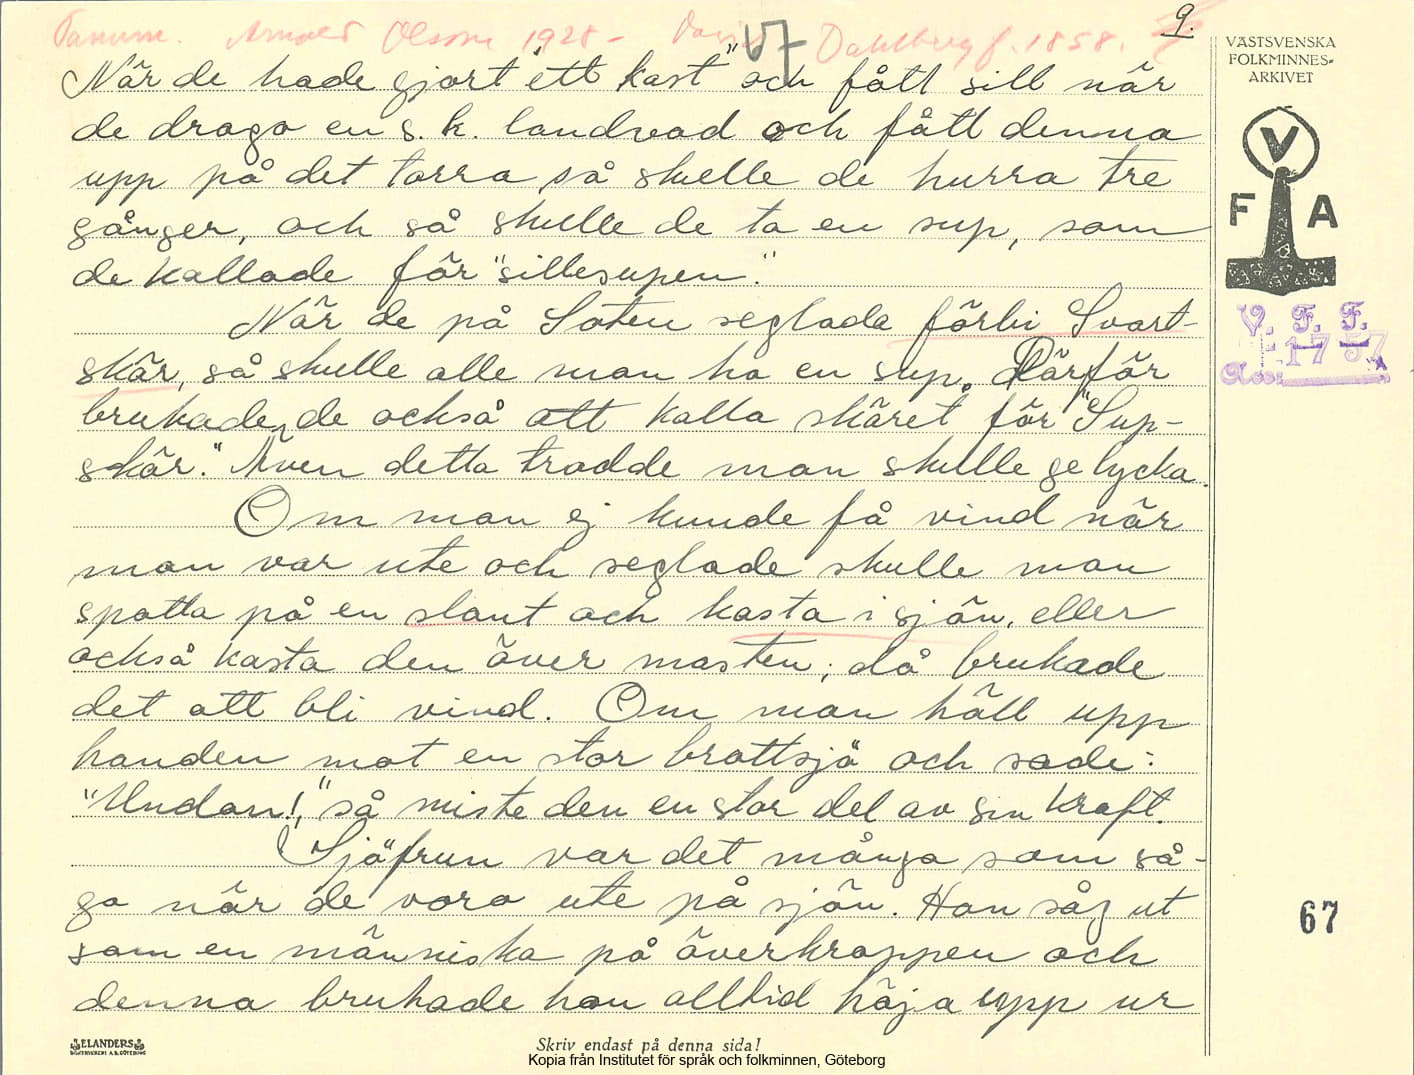 9.
Tanum. Arnold Olsson 1928 - David Dahlberg f. 1858.
67
VÄSTSVENSKA
FOLKMINNES-
ARKIVET
När de hade gjort "ett kast" och fått sill när
de drogo en s. k. landvad och fått denna
upp på det torra så skulle de hurra tre
gånger, och så skulle de ta en sup, som
de kallade för "sillesupen."
När de på Soten seglade förbi Svart-
skär, så skulle alle man ha en sup. Därför
brukade de också att kalla skäret för "Sup-
skär." Även detta trodde man skulle ge lycka.
Om man ej kunde få vind när
man var ute och seglade skulle man
spotta på en slant och kasta i sjön, eller
också kasta den över masten; då brukade
det att bli vind. Om man höll upp
handen mot en stor brottsjö och sade:
"Undan!," så miste den en stor del av sin kraft.
Sjöfrun var det många som så-
go när de voro ute på sjön. Hon såg ut
som en människa på överkroppen och
denna brukade hon alltid höja upp ur
V
F A
V. F. F.
1757
67
ELANDERS
BOKTRYCKERI A.B. GÖTEBORG
Skriv endast på denna sida!
Kopia från Institutet för språk och folkminnen, Göteborg